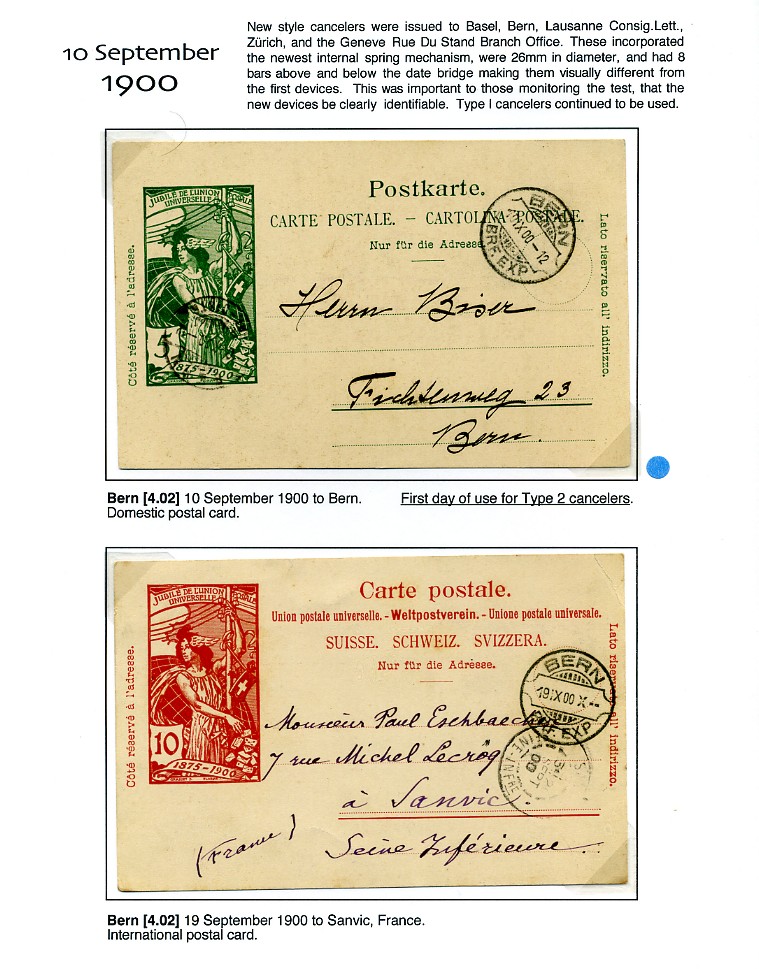 10 September
1900
New style cancelers were issued to Basel, Bern, Lausanne Consig.Lett.,
Zürich, and the Geneve Rue Du Stand Branch Office. These incorporated
the newest internal spring mechanism, were 26mm in diameter, and had 8
bars above and below the date bridge making them visually different from
the first devices. This was important to those monitoring the test, that the
new devices be clearly identifiable. Type I cancelers continued to be used.
JUBILÉ DE L'UNION POSTALE
UNIVERSELLE
5
1875-1900
Côté réservé à l'adresse.
Postkarte.
CARTE POSTALE. – CARTOLINA POSTALE.
Nur für die Adresse
BERN
IX 00-12
BRF. EXP
Lato riservato all' indirizzo.
Herrn Biser
Fichtenweg 23
Bern.
Bern [4.02] 10 September 1900 to Bern. First day of use for Type 2 cancelers.
Domestic postal card.
JUBILÉ DE L'UNION POSTALE
UNIVERSELLE
10
1875-1900
Côté réservé à l'adresse.
Carte postale.
Union postale universelle. - Weltpostverein. - Unione postale universale.
SUISSE. SCHWEIZ. SVIZZERA.
Nur für die Adresse.
BERN
19 IX 00 X--
BRF. EXP
Lato riservato all' indirizzo.
Monsieur Paul Eschbacher
7 rue Michel Lecroq
à Sanvic
(France)
Seine Inférieure.
Bern [4.02] 19 September 1900 to Sanvic, France.
International postal card.